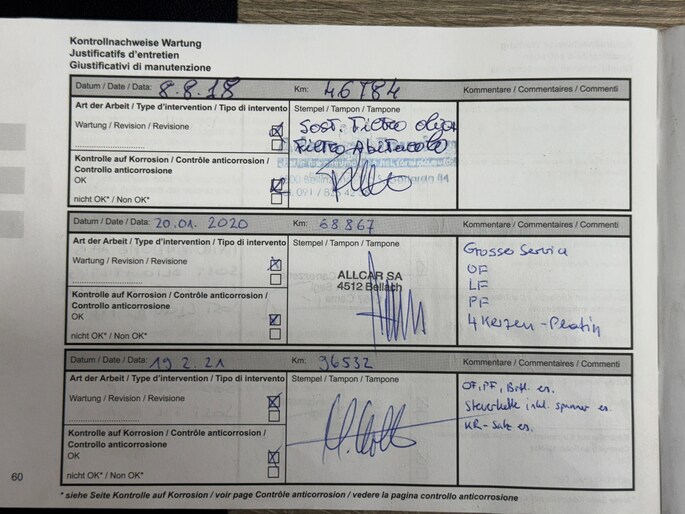 Kontrollnachweise Wartung
Justificatifs d'entretien
Giustificativi di manutenzione
Datum / Date / Data: 8.8.18 Km: 46784 Kommentare / Commentaires / Commenti
Art der Arbeit / Type d'intervention / Tipo di intervento Stempel / Tampon / Tampone
Wartung / Revision / Revisione
Sost. Filtro olio
Filtro Abitacolo
Kontrolle auf Korrosion / Contrôle anticorrosion /
Controllo anticorrosione
OK
nicht OK* / Non OK*
Datum / Date / Data: 20.01. 2020 Km: 68867 Kommentare / Commentaires / Commenti
Art der Arbeit / Type d'intervention / Tipo di intervento Stempel / Tampon / Tampone
Wartung / Revision / Revisione
ALLCAR SA
4512 Bellach
Kontrolle auf Korrosion / Contrôle anticorrosion /
Controllo anticorrosione
OK
nicht OK* / Non OK*
Grosse Service
OF
LF
PF
4 Kerzen - Platin
Datum / Date / Data: 19.2.21 Km: 96532 Kommentare / Commentaires / Commenti
Art der Arbeit / Type d'intervention / Tipo di intervento Stempel / Tampon / Tampone
Wartung / Revision / Revisione
Kontrolle auf Korrosion / Contrôle anticorrosion /
Controllo anticorrosione
OK
nicht OK* / Non OK*
OF, PF, Brfl. es.
Steuerkette inkl. spanner es.
KR-Satz es.
60
* siehe Seite Kontrolle auf Korrosion / voir page Contrôle anticorrosion / vedere la pagina controllo anticorrosione